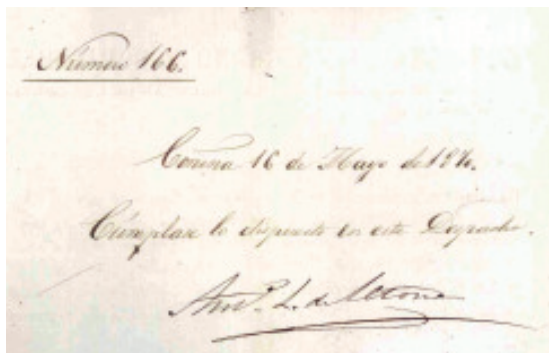 Número 166.
Coruña 16 de Mayo de 1870.
Cúmplase lo dispuesto en este Despacho.
L. de